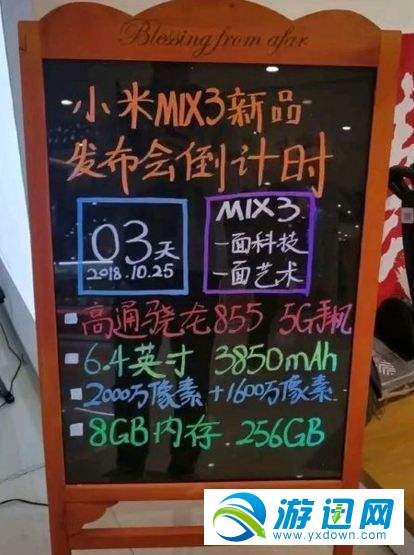 Blessing from afar
小米MIX3新品
发布会倒计时
03天
2018.10.25
MIX3
一面科技
一面艺术
高通骁龙855 5G手机
6.4英寸 3850mAh
2000万像素+1600万像素
8GB内存 256GB
游迅网
www.yxdown.com